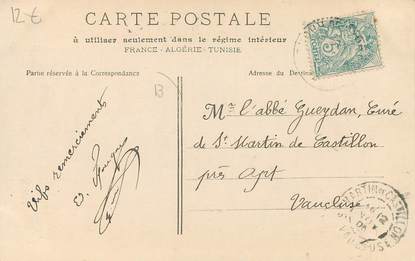 12 €
CARTE POSTALE
à utiliser seulement dans le régime intérieur
FRANCE - ALGÉRIE - TUNISIE
Partie réservée à la Correspondance
Adresse du Destina
B
Mr l'abbé Gueydan, Curé
de St Martin de Castillon
près Apt
Vaucluse
Vifs remerciements
5
MARTIN DE CASTILLON
VAUCLUSE